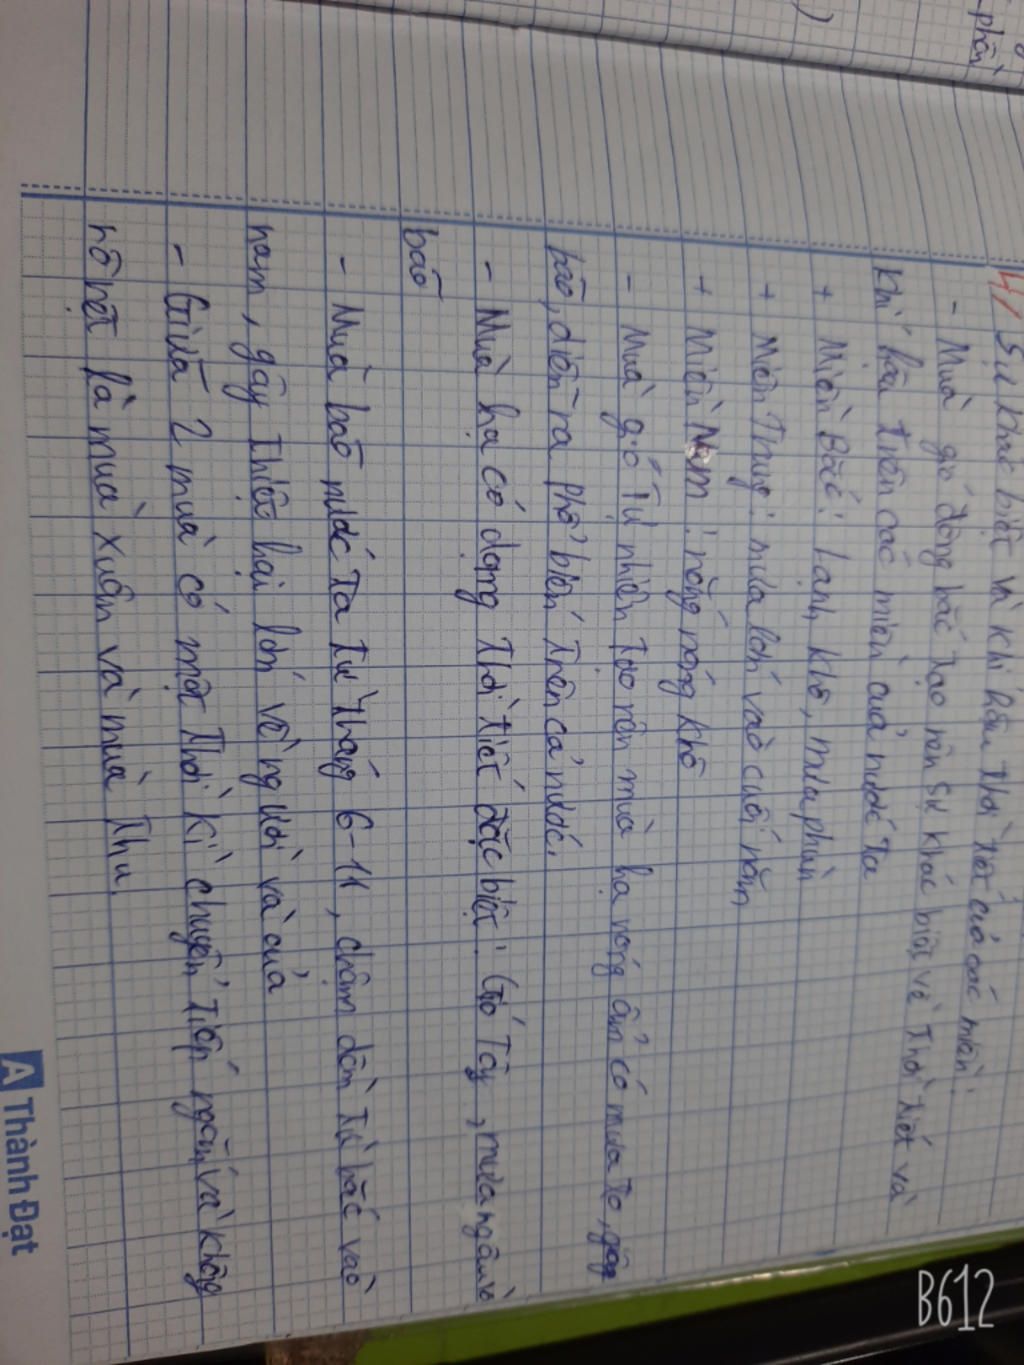 phần
)
4/ Sự khác biệt và khí hậu thời tiết của các miền:
- Mùa gió đông bắc tạo nên sự khác biệt về thời tiết và
khí hậu trên các miền của nước ta
+ Miền Bắc: Lạnh, khô, mưa phùn
+ Miền Trung: mưa lớn vào cuối năm
+ Miền Nam: nắng nóng khô
- Mùa gió Tự nhiên tạo nên mùa hạ nóng ẩm có mưa to, gông
bão, diễn ra phổ biến trên cả nước.
- Mùa hạ có dạng thời tiết đặc biệt: Gió Tây, mưa ngâu và
bão
- Mùa bão nước ta từ tháng 6-11, chậm dần từ bắc vào
nam, gây thiệt hại lớn về người và của
- Giữa 2 mùa có một thời kì chuyển tiếp, ngắn và không
rõ nét là mùa xuân và mùa thu.
A Thành Đạt
B612